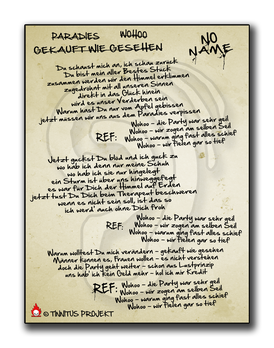 PARADIES WOHOO
GEKAUFT WIE GESEHEN
NO NAME
Du schaust mich an, ich schau zurück
Du bist mein aller Bestes Stück
zusammen werden wir den Himmel erklimmen
zugedröhnt mit all unseren Sinnen
direkt in das Glück hinein
wird es unser Verderben sein
Warum hast Du nur vom Apfel gebissen
jetzt müssen wir uns aus dem Paradies verpissen
REF:
Wohoo - die Party war sehr geil
Wohoo - wir zogen am selben Seil
Wohoo - warum ging fast alles schief
Wohoo - wir fielen gar so tief
Jetzt guckst Du blöd und ich guck zu
wo hab ich denn nur meine Schuh
wo hab ich sie nur hingelegt
ein Sturm ist über uns hinweggefegt
es war für Dich der Himmel auf Erden
jetzt tust Du Dich beim Therapeut beschweren
wenn es nicht sein soll, ist das so
ich werd' auch ohne Dich froh
REF:
Wohoo - die Party war sehr geil
Wohoo - wir zogen am selben Seil
Wohoo - warum ging fast alles schief
Wohoo - wir fielen gar so tief
Warum wolltest Du mich verändern - gekauft wie gesehen
Männer können es, Frauen wollen - es nicht verstehen
doch die Party geht weiter - schon aus Lustprinzip
uns hab' ich kein Geld mehr - hol ich mir Kredit
REF:
Wohoo - die Party war sehr geil
Wohoo - wir zogen am selben Seil
Wohoo - warum ging fast alles schief
Wohoo - wir fielen gar so tief
© TINNITUS PROJEKT